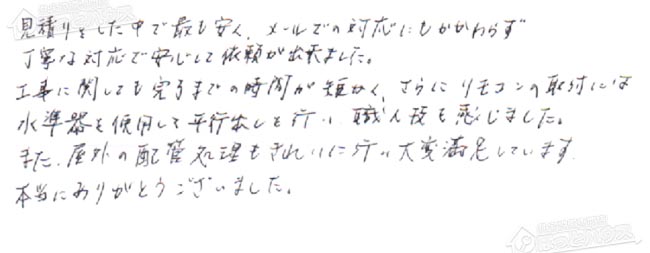 見積りをした中で最も安く、メールでの対応にもかかわらず
丁寧な対応で安心して依頼が出来ました。
工事に関しても完了までの時間が短かく、さらにリモコンの取付には
水準器を使用して平行出しを行い、職人技を感じました。
また、屋外の配管処理もきれいに行い大変満足しています。
本当にありがとうございました。